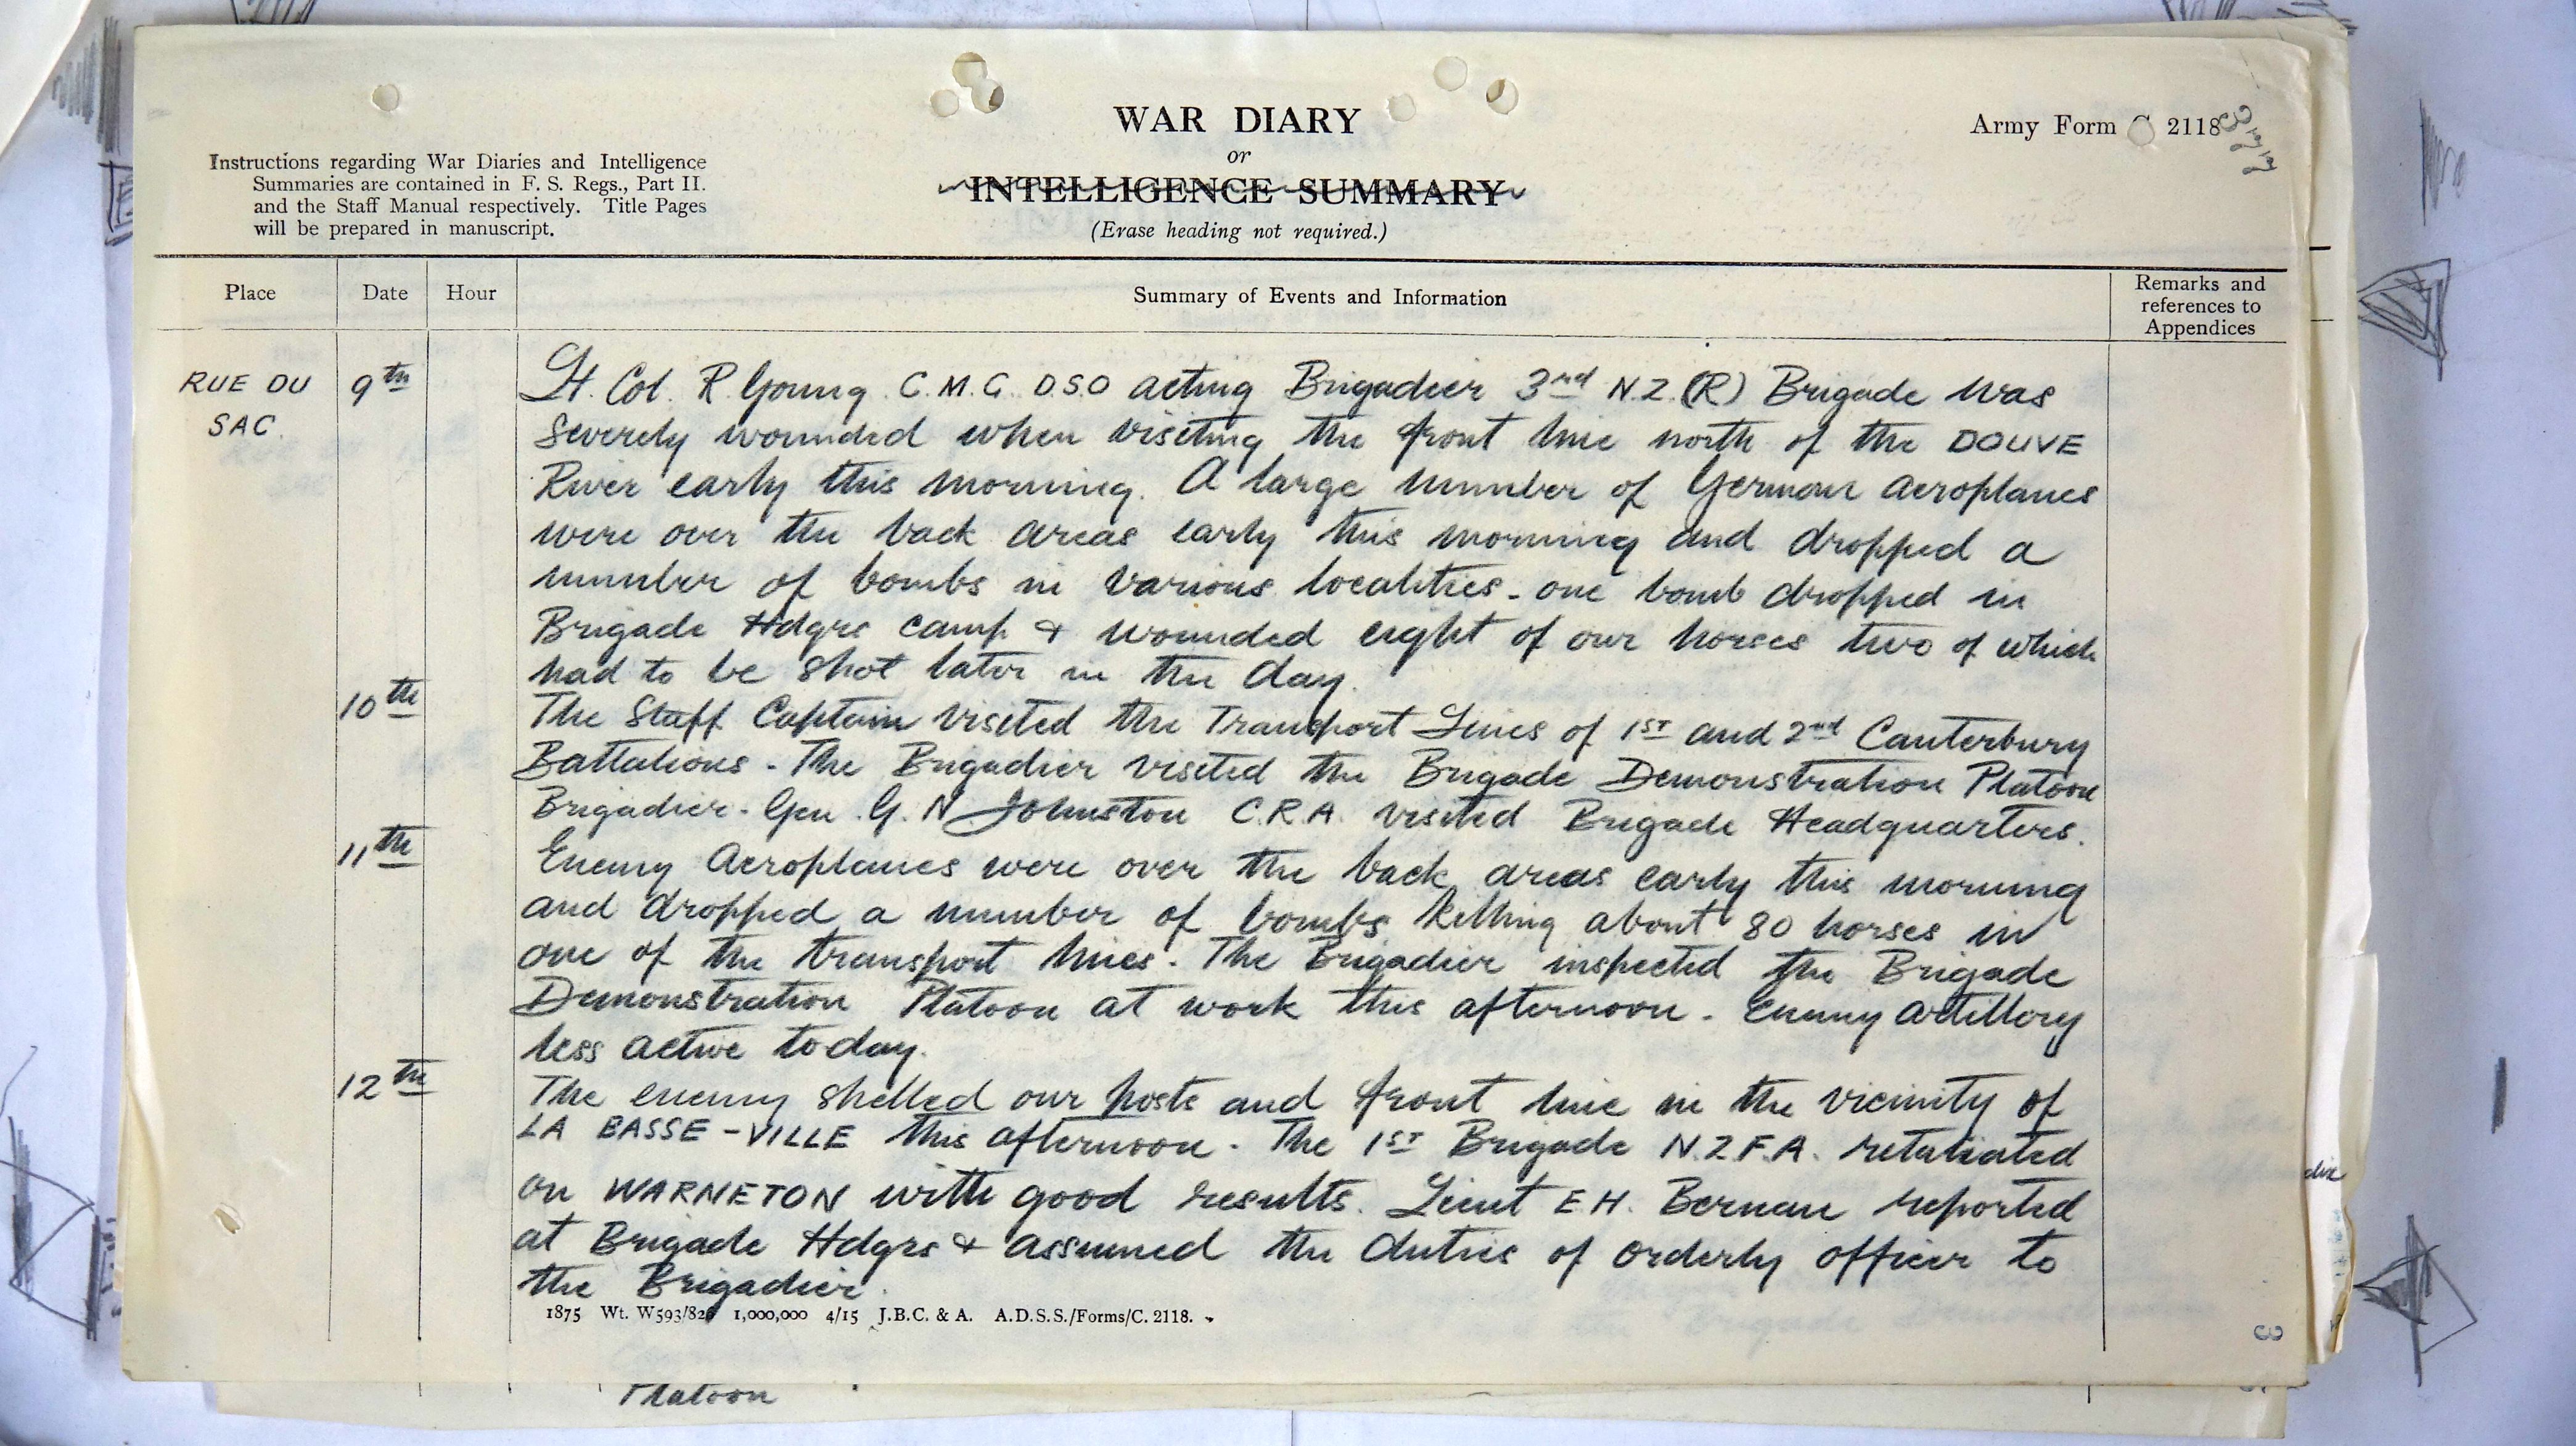 WAR DIARY
or
INTELLIGENCE SUMMARY
(Erase heading not required.)
Army Form C 2118
Instructions regarding War Diaries and Intelligence
Summaries are contained in F. S. Regs., Part II.
and the Staff Manual respectively. Title Pages
will be prepared in manuscript.
Place Date Hour Summary of Events and Information Remarks and
references to
Appendices
RUE DU
SAC.
9th Lt. Col. R. Young. C.M.G. D.S.O acting Brigadier 3rd N.Z.(R) Brigade was
severely wounded when visiting the front line north of the DOUVE
River early this morning. A large number of German aeroplanes
were over the back areas early this morning and dropped a
number of bombs in various localities - one bomb dropped in
Brigade Hdqrs camp & wounded eight of our horses two of which
had to be shot later in the day.
10th The Staff Captain visited the Transport Lines of 1st and 2nd Canterbury
Battalions - The Brigadier visited the Brigade Demonstration Platoon
Brigadier-Gen. G. N Johnston C.R.A. visited Brigade Headquarters.
11th Enemy Aeroplanes were over the back areas early this morning
and dropped a number of bombs killing about 80 horses in
one of the transport lines. The Brigadier inspected the Brigade
Demonstration Platoon at work this afternoon - Enemy artillery
less active today.
12th The enemy shelled our posts and front line in the vicinity of
LA BASSE-VILLE this afternoon - The 1st Brigade N.Z.F.A. retaliated
on WARNETON with good results. Lieut E.H. Bernau reported
at Brigade Hdqrs & assumed the duties of orderly officer to
the Brigadier.
1875 Wt. W593/826 1,000,000 4/15 J.B.C. & A. A.D.S.S./Forms/C. 2118.
3
Platoon